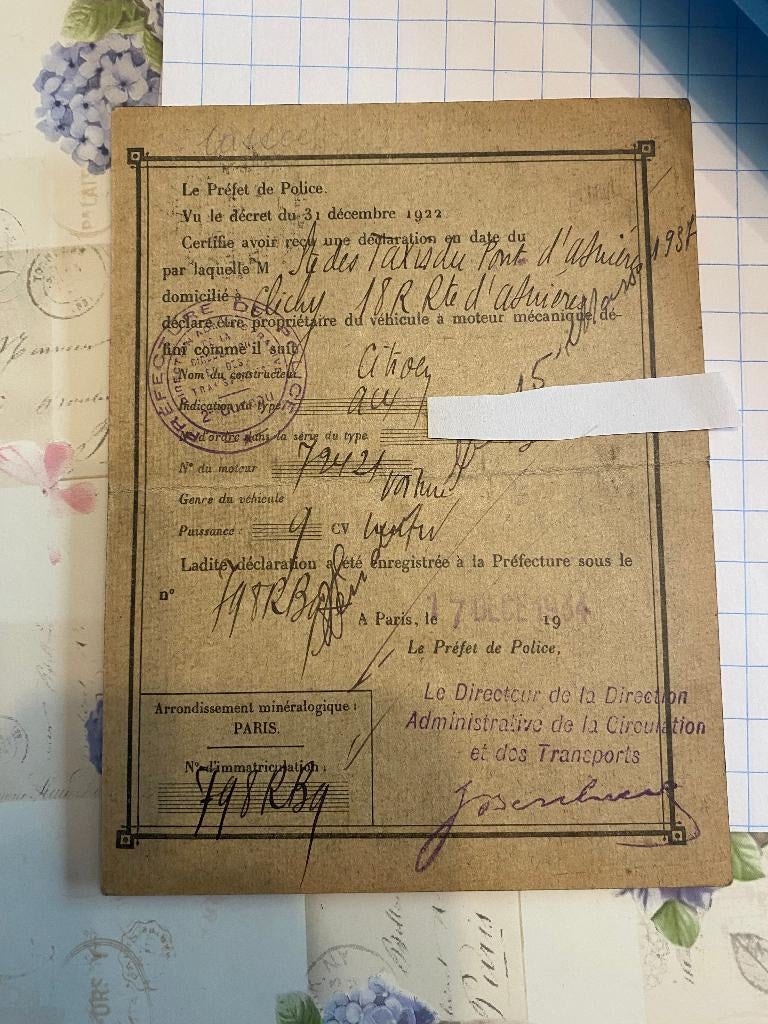 Le Préfet de Police.
Vu le décret du 31 décembre 1922
Certifie avoir reçu une déclaration en date du
par laquelle M Sté des Taxis du Pont d'asnières
domicilié à Clichy 18 R Rte d'asnières
déclare être propriétaire du véhicule à moteur mécanique dé-
fini comme il suit
Nom du constructeur Citroen
Indication du type
N° d'ordre dans la série du type
N° du moteur 79421
Genre du véhicule voiture
Puissance : 9 CV
Ladite déclaration a été enregistrée à la Préfecture sous le
n° 798RB9
A Paris, le 17 DECE 1934 19
Le Préfet de Police,
Le Directeur de la Direction
Administrative de la Circulation
et des Transports
Arrondissement minéralogique :
PARIS.
N° d'immatriculation :
798RB9
15 Mars 1937
PREFECTURE DE POLICE
Paris